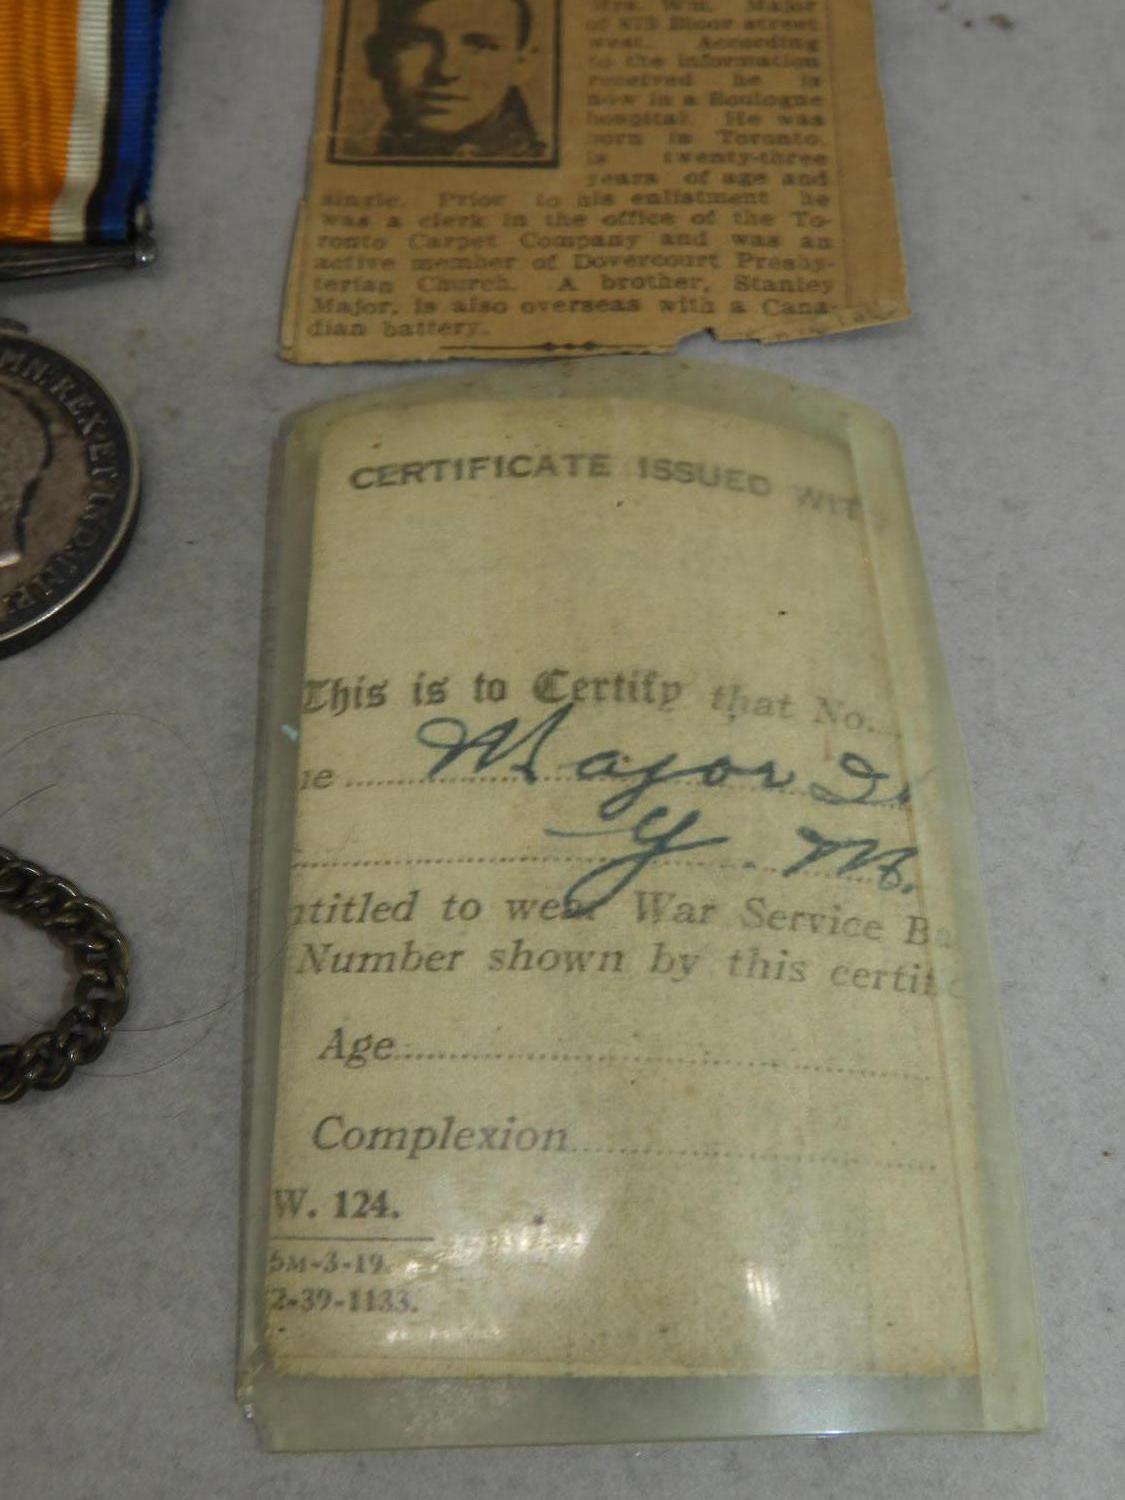 Mrs. Wm. Major
of 875 Bloor street
west. According
to the information
received he is
now in a Boulogne
hospital. He was
born in Toronto,
is twenty-three
years of age and
single. Prior to his enlistment he
was a clerk in the office of the To-
ronto Carpet Company and was an
active member of Dovercourt Presby-
terian Church. A brother, Stanley
Major, is also overseas with a Cana-
dian battery.
MN:REX ET IND:IMP:
CERTIFICATE ISSUED WITH
This is to Certify that No.
me Major
Y. M.
ntitled to wear War Service Ba
Number shown by this certific
Age
Complexion
W. 124.
5M-3-19.
2-39-1133.